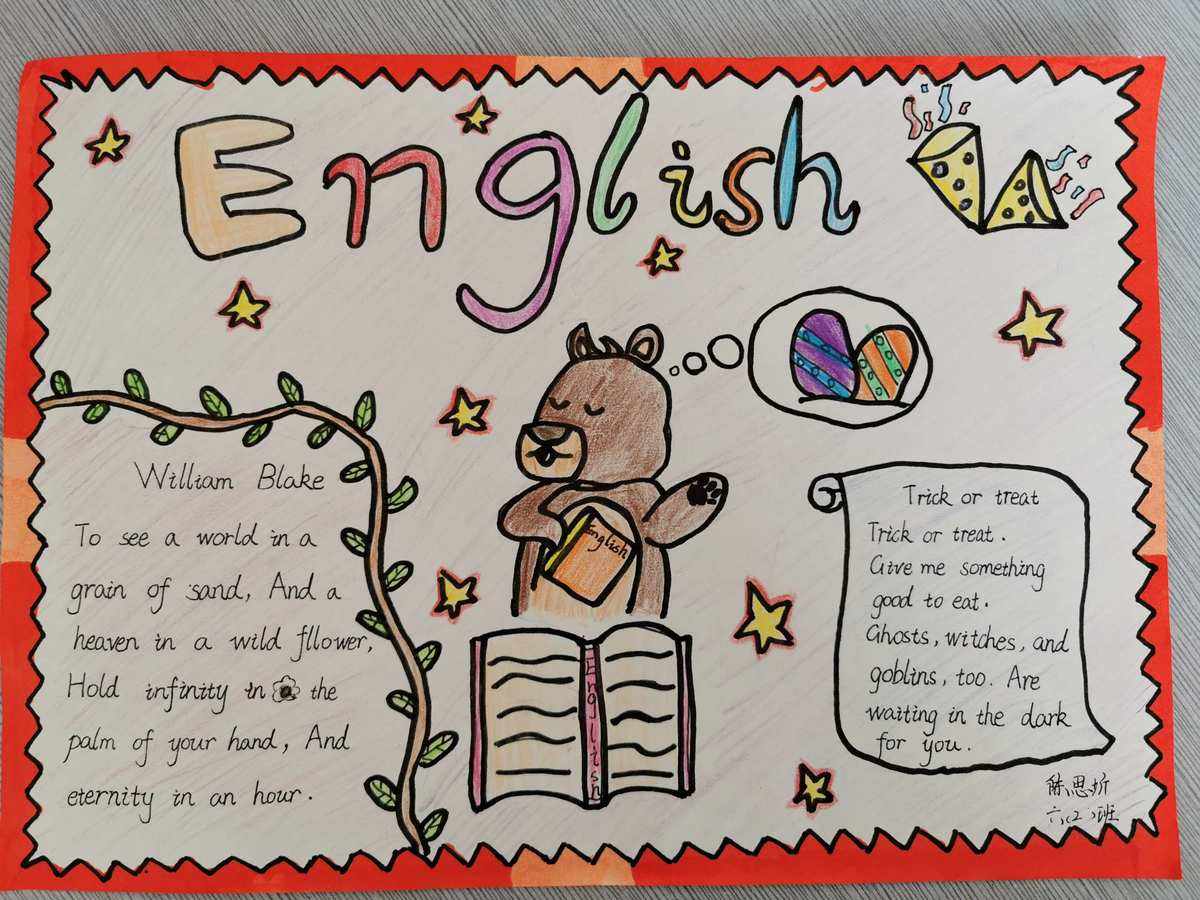 English
William Blake
To see a world in a
grain of sand, And a
heaven in a wild fllower,
Hold infinity in the
palm of your hand, And
eternity in an hour.
English
English
Trick or treat
Trick or treat.
Give me something
good to eat.
Ghosts, witches, and
goblins, too. Are
waiting in the dark
for you.
陈思圻
六(2)班